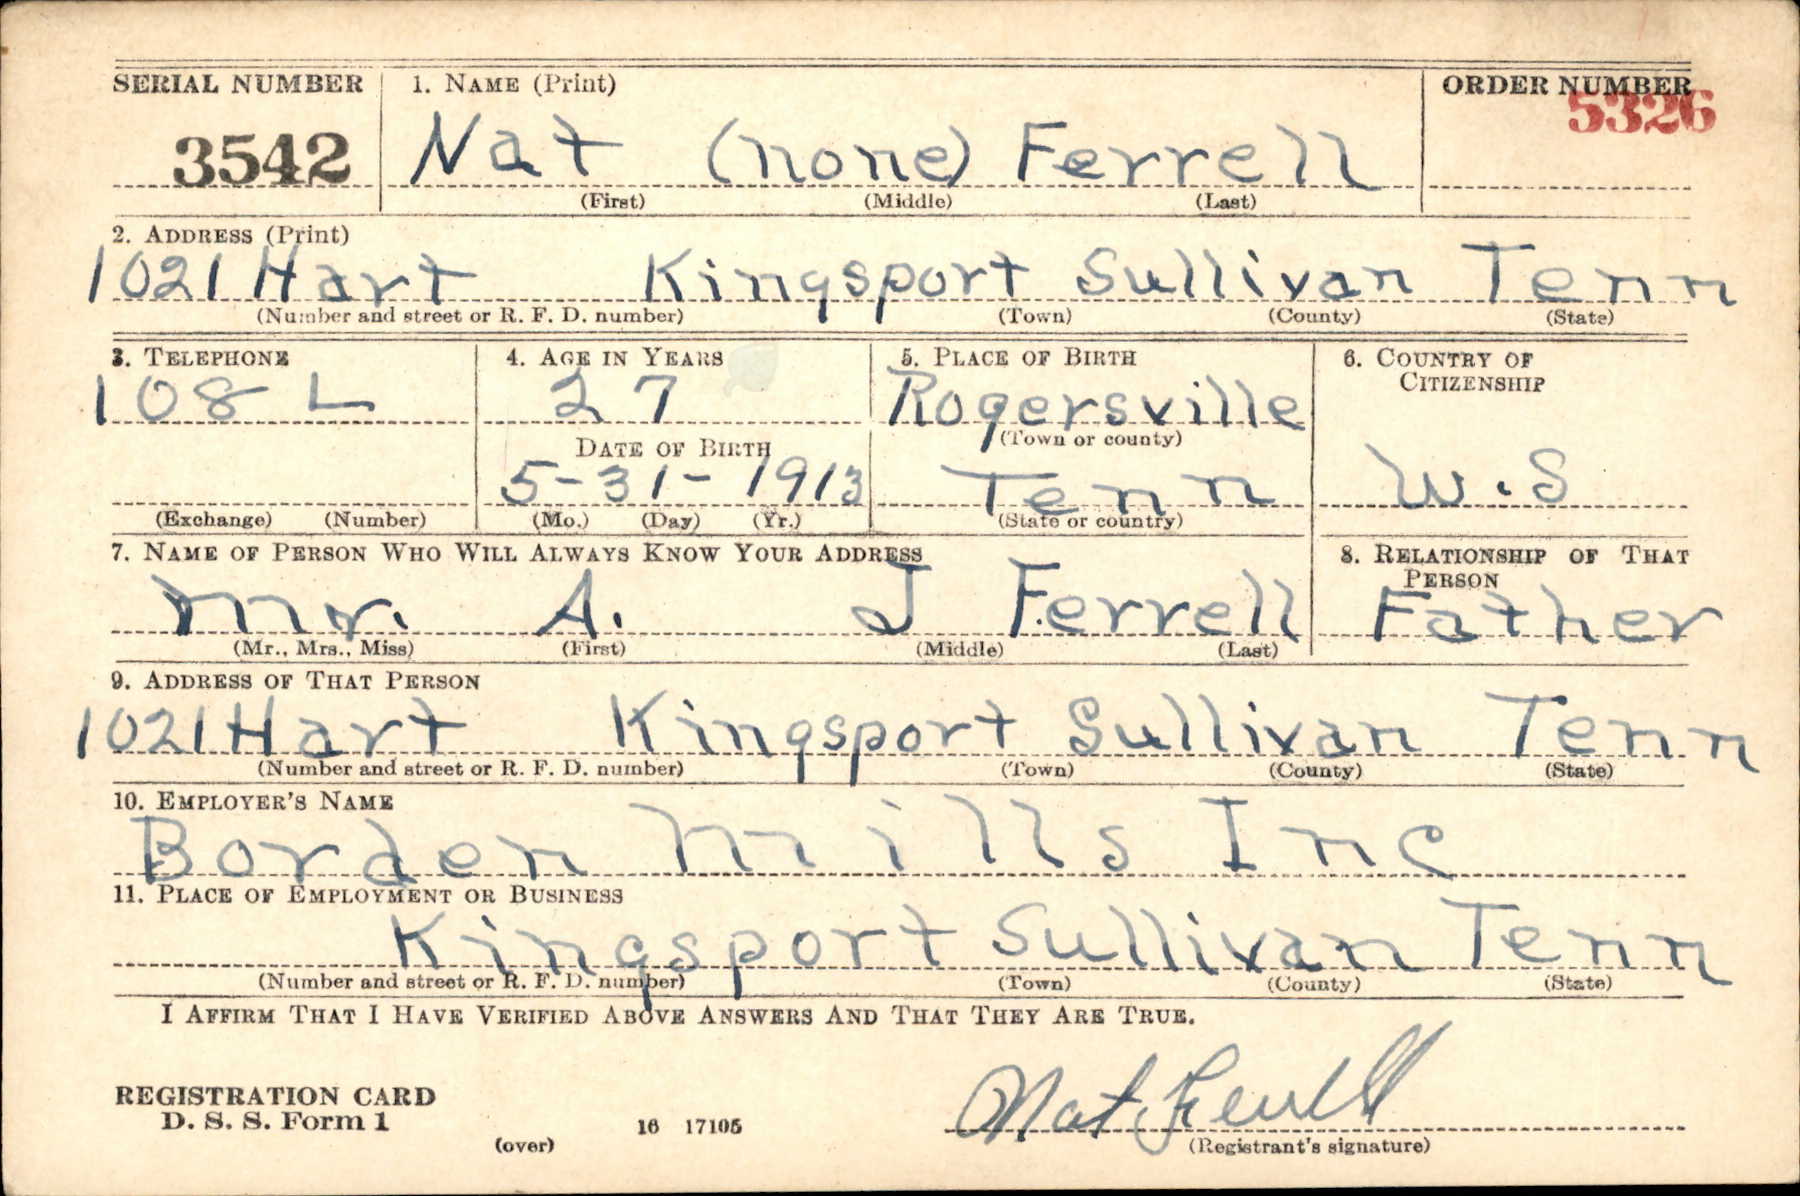 SERIAL NUMBER 1. NAME (Print) ORDER NUMBER
3542 Nat (none) Ferrell 5326
(First) (Middle) (Last)
2. ADDRESS (Print)
1021 Hart Kingsport Sullivan Tenn
(Number and street or R. F. D. number) (Town) (County) (State)
3. TELEPHONE 4. AGE IN YEARS 5. PLACE OF BIRTH 6. COUNTRY OF CITIZENSHIP
108 L 27 Rogersville
DATE OF BIRTH (Town or county)
5-31-1913 Tenn U.S
(Exchange) (Number) (Mo.) (Day) (Yr.) (State or country)
7. NAME OF PERSON WHO WILL ALWAYS KNOW YOUR ADDRESS 8. RELATIONSHIP OF THAT PERSON
Mr. A. J Ferrell Father
(Mr., Mrs., Miss) (First) (Middle) (Last)
9. ADDRESS OF THAT PERSON
1021 Hart Kingsport Sullivan Tenn
(Number and street or R. F. D. number) (Town) (County) (State)
10. EMPLOYER'S NAME
Borden Mills Inc
11. PLACE OF EMPLOYMENT OR BUSINESS
Kingsport Sullivan Tenn
(Number and street or R. F. D. number) (Town) (County) (State)
I AFFIRM THAT I HAVE VERIFIED ABOVE ANSWERS AND THAT THEY ARE TRUE.
REGISTRATION CARD
D. S. S. Form 1 Nat Ferrell
(over) 16 17105 (Registrant's signature)